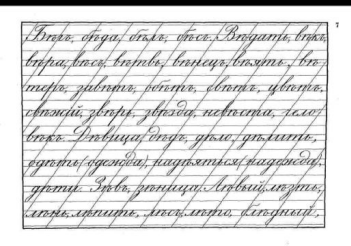 Бѣгъ, бѣда, бѣлъ, бѣсъ. Вѣдать, вѣкъ,
вѣра, вѣсъ, вѣтвь, вѣнецъ, вѣять, вѣ-
теръ, завѣтъ, обѣтъ, свѣтъ, цвѣтъ,
свѣжій, звѣрь, звѣзда, невѣста, чело-
вѣкъ. Дѣвица, дѣдъ, дѣло, дѣлить,
одѣть (одежда), надѣяться (надежда),
дѣти. Зѣвъ, зѣница. Лѣвый, лѣзть,
лѣнь, лѣпить, лѣсъ, лѣто, блѣдный,